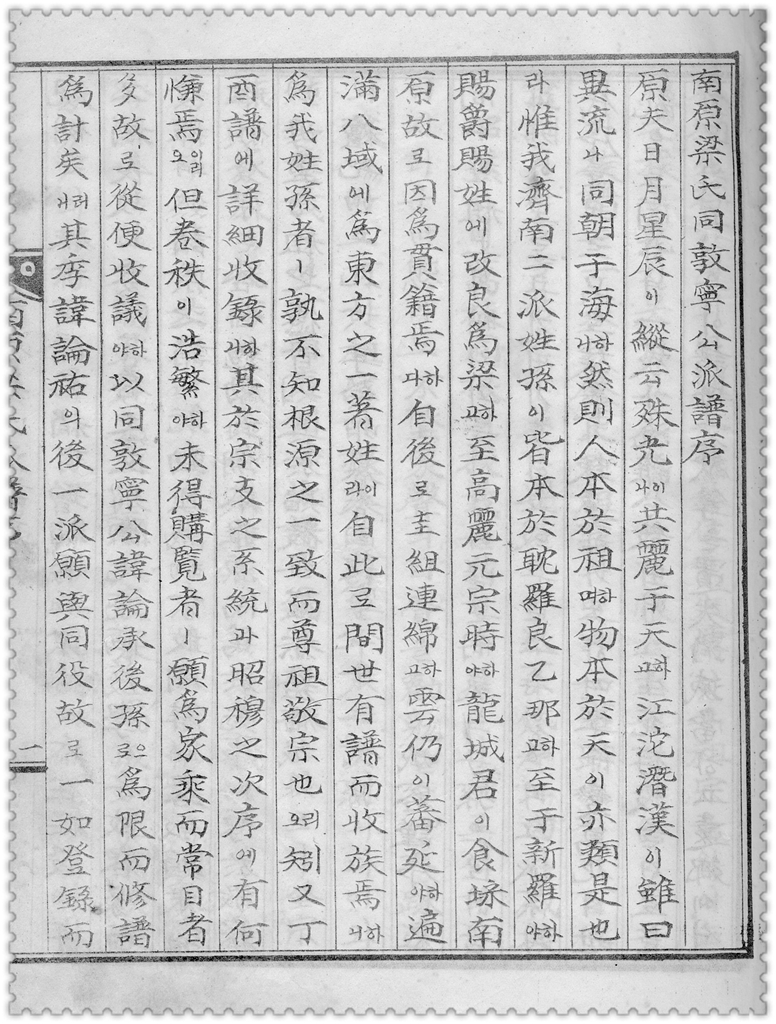 南原梁氏同敦寧公派譜序
原夫日月星辰이縱云殊光이나共麗于天하고江沱潛漢이雖曰
異流나同朝于海하니然則人本於祖하며物本於天이亦類是也
라惟我濟南二派姓孫이皆本於耽羅良乙那하고至于新羅하야
賜爵賜姓에改良爲梁하고至高麗元宗時하야龍城君이食埰南
原故로因爲貫籍焉하다自後로圭組連綿하고雲仍이蕃延하야遍
滿八域에爲東方之一著姓이라自此로間世有譜而收族焉하니
爲我姓孫者ㅣ孰不知根源之一致而尊祖敬宗也리오矧又丁
酉譜에詳細收錄하니其於宗支之系統과昭穆之次序에有何
慊焉이리오但卷秩이浩繁하야未得購覽者ㅣ願爲家乘而常目者
多故로從便收議하야以同敦寧公諱論承後孫으로爲限而修譜
爲計矣러니其季諱論祐의後一派願與同役故로一如登錄而
南原梁氏派譜序
一